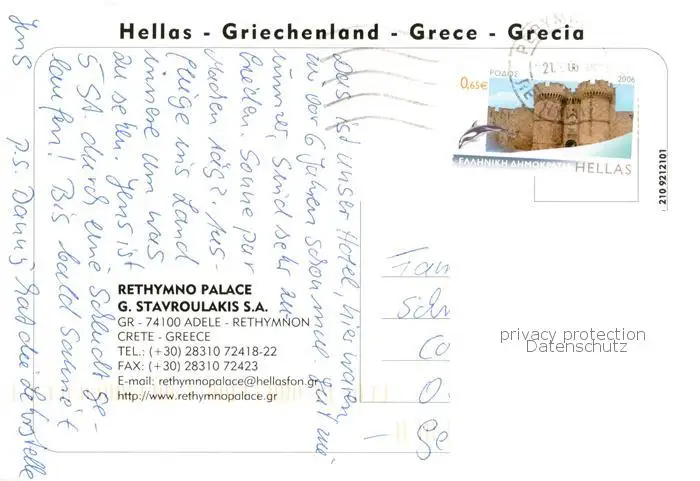 Hellas - Griechenland - Grece - Grecia
ΡΟΔΟΣ
2006
0,65€
ΕΛΛΗΝΙΚΗ ΔΗΜΟΚΡΑΤΙΑ
HELLAS
210 9212101
Das ist unser Hotel, hier waren
wir vor 6 Jahren schon mal.
immer, sind sehr zu-
frieden. Sonne pur
machen tägl. Aus-
flüge ins Land
innere um was
zu sehen. Jens ist
5 St. durch eine Schlucht ge-
laufen! Bis bald
Jens
P.S. Danny hat die Lehrstelle
RETHYMNO PALACE
G. STAVROULAKIS S.A.
GR - 74100 ADELE - RETHYMNON
CRETE - GREECE
TEL.: (+30) 28310 72418-22
FAX: (+30) 28310 72423
E-mail: rethymnopalace@hellasfon.gr
http://www.rethymnopalace.gr
Fam
privacy protection
Datenschutz